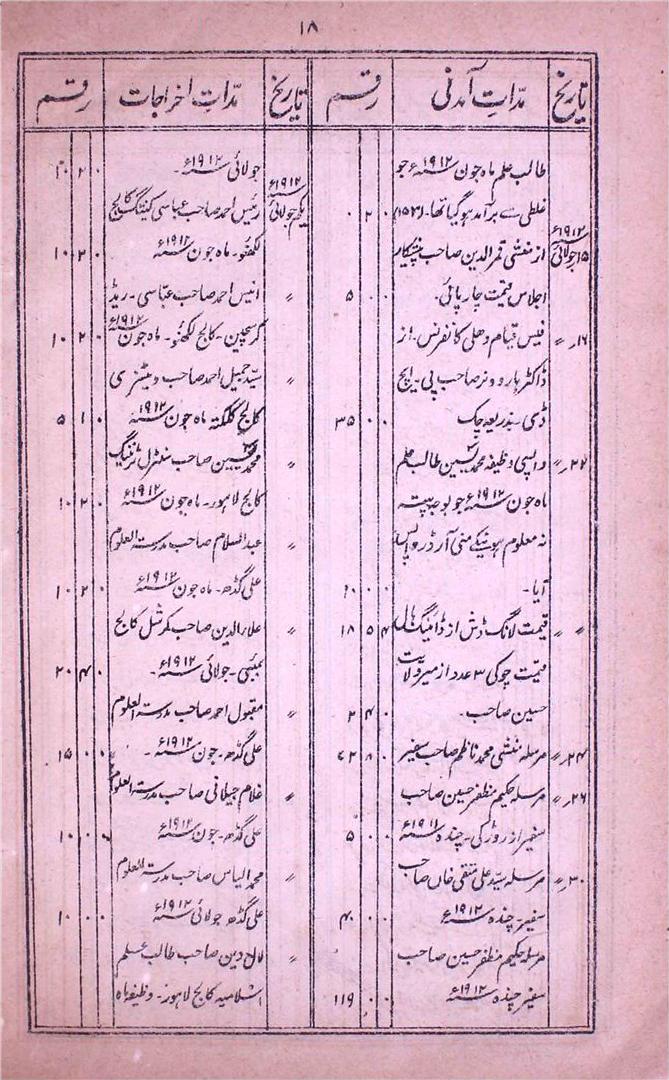 ۱۸
تاریخ | مدّاتِ آمدنی | رقم | تاریخ | مدّاتِ اخراجات | رقم
طالب علم ماہ جون ۱۹۱۲ء جو
غلطی سے برآمد ہوگیا تھا۔ (۱۵۳) | ۰ ۲ ۰
۱۵ جولائی ۱۹۱۲ء | از منشی قمرالدین صاحب پیشکار
اجلاس قیمت چارپائی۔ | ۵ ۰ ۰
۱۶ ؍ 〃 | فیس قیام دہلی کانفرنس۔ از
ڈاکٹر ہارووٹز صاحب پی۔ ایچ
ڈی۔ بذریعہ چک | ۳۵ ۰ ۰
۲۲ ؍ 〃 | واپسی وظیفہ محمد یٰسین طالب علم
ماہ جون ۱۹۱۲ء جو بوجہ پتہ
نہ معلوم ہونیکے منی آرڈر واپس
آیا۔ | ۱۰ ۰ ۰
〃 〃 | قیمت لانگ ڈش از ڈائننگ ہال | ۱۸ ۵ ۴
قیمت چوکی ۳ عدد از میر ولایت
حسین صاحب۔ | ۲ ۴ ۰
۲۴ ؍ 〃 | مرسلہ منشی محمد ناظم صاحب سفیر | ۷۲ ۸ ۰
۲۶ ؍ 〃 | مرسلہ حکیم مظفر حسین صاحب
سفیر از روڑکی۔ چندہ ۱۹۱۱ء | ۵ ۰ ۰
۳۰ ؍ 〃 | مرسلہ سیّد علی متقی خاں صاحب
سفیر۔ چندہ ۱۹۱۲ء | ۴۰ ۰ ۰
مرسلہ حکیم مظفر حسین صاحب
سفیر چندہ ۱۹۱۲ء | ۱۱۹ ۰ ۰
جولائی ۱۹۱۲ء۔ | ۲ ۰
یکم جولائی ۱۹۱۲ء | رئیس احمد صاحب عباسی کیننگ کالج
لکھنؤ۔ ماہ جون ۱۹۱۲ء | ۱۰ ۲ ۰
〃 | انیس احمد صاحب عبّاسی۔ ریڈ
کرسچین۔ کالج لکھنؤ۔ ماہ جون ۱۹۱۲ء | ۱۰ ۲ ۰
〃 | سیّد جمیل احمد صاحب ویٹنری
کالج کلکتہ ماہ جون ۱۹۱۲ء | ۵ ۱ ۰
〃 | محمد یٰسین صاحب سنٹرل ٹریننگ
کالج لاہور۔ ماہ جون ۱۹۱۲ء | ۱۰ ۲ ۰
〃 | عبدالسلام صاحب مدرسۃ العلوم
علی گڈھ۔ ماہ جون ۱۹۱۲ء | ۱۰ ۲ ۰
〃 | علاؤالدین صاحب کمرشل کالج
بمبئی۔ جولائی ۱۹۱۲ء۔ | ۲۰ ۴ ۰
〃 | مقبول احمد صاحب مدرسۃ العلوم
علی گڈھ۔ جون ۱۹۱۲ء۔ | ۱۵ ۰ ۰
〃 | غلام جیلانی صاحب مدرسۃ العلوم
علی گڈھ۔ جون ۱۹۱۲ء | ۱۰ ۰ ۰
〃 | محمد الیاس صاحب مدرسۃ العلوم
علی گڈھ جولائی ۱۹۱۲ء | ۱۰ ۰ ۰
〃 | لال دین صاحب طالب علم
اسلامیہ کالج لاہور۔ وظیفہ ماہ